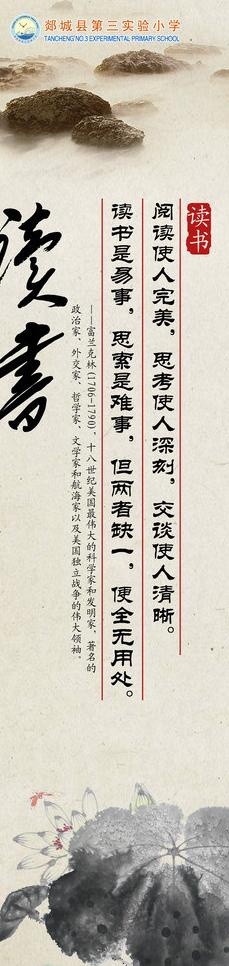 郯城县第三实验小学
TANCHENG'NO.3 EXPERIMENTAL PRIMARY SCHOOL
读书
阅读使人完美，思考使人深刻，交谈使人清晰。
读书是易事，思索是难事，但两者缺一，便全无用处。
——富兰克林(1706-1790)，十八世纪美国最伟大的科学家和发明家，著名的
政治家、外交家、哲学家、文学家和航海家以及美国独立战争的伟大领袖。
读書